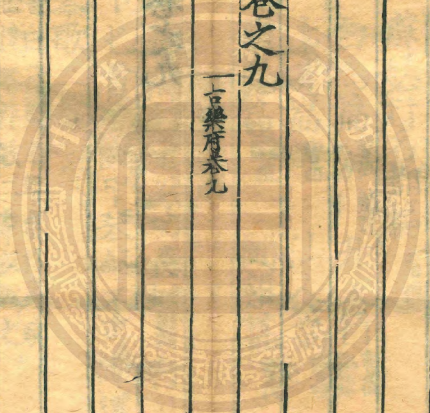 卷之九
古樂府卷九